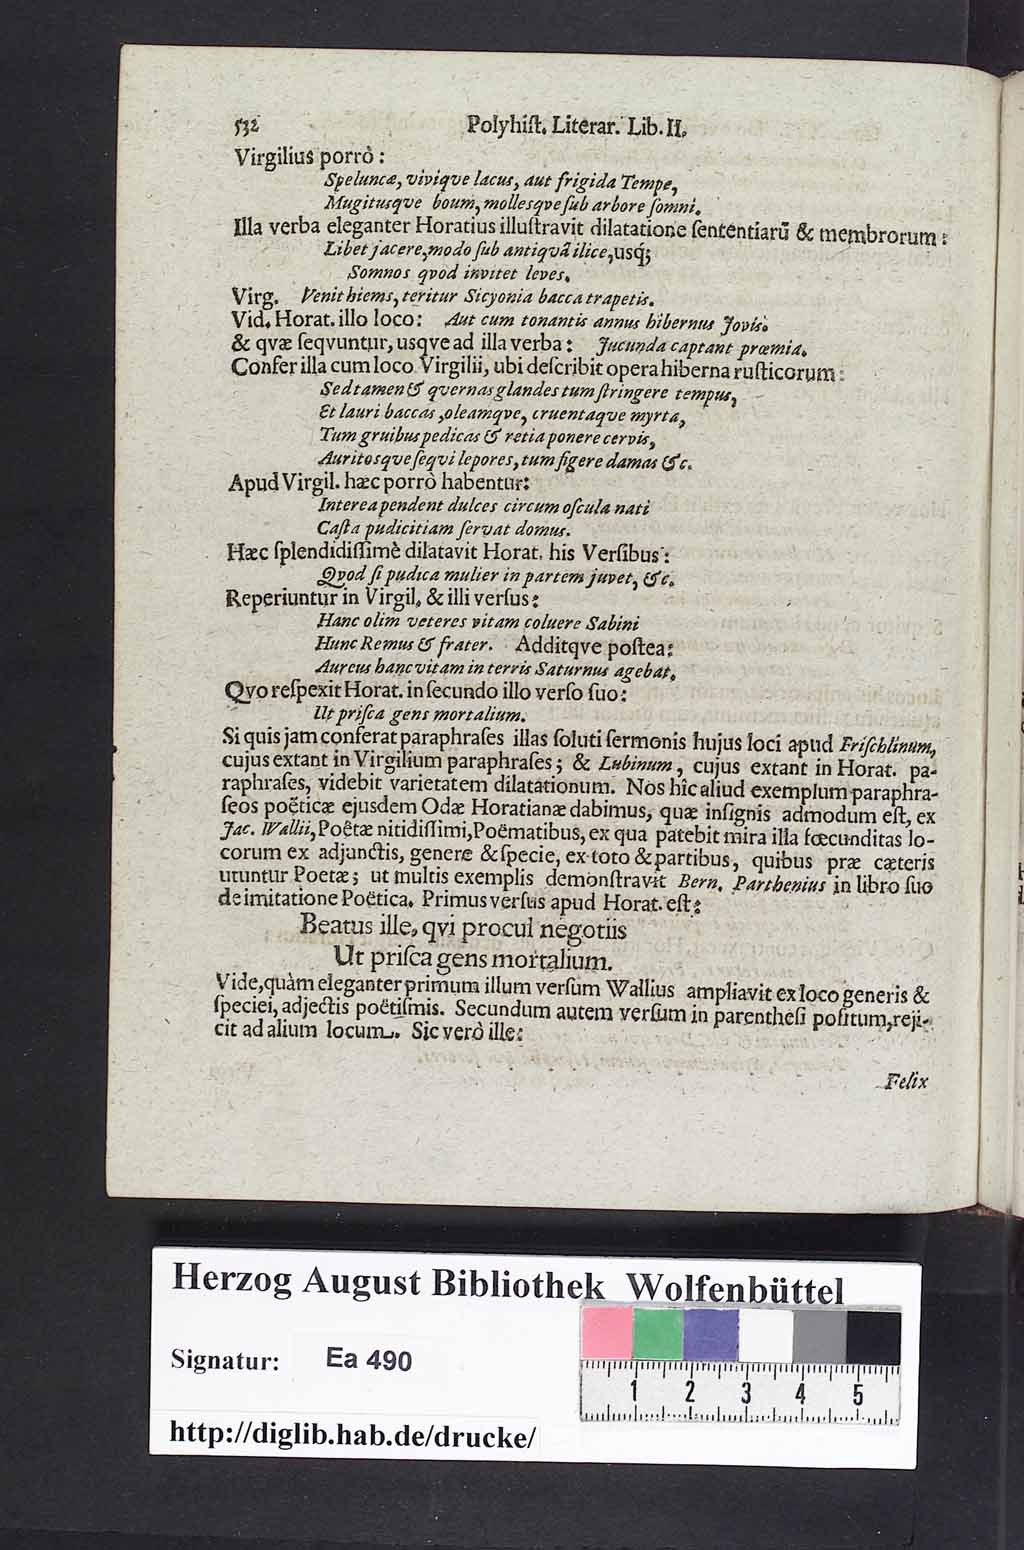 532 Polyhiſt. Literar. Lib. II.
Virgilius porrò:
Speluncæ, vivique lacus, aut frigida Tempe,
Mugitusqve boum, mollesqve ſub arbore ſomni.
Illa verba eleganter Horatius illuſtravit dilatatione ſententiarũ & membrorum:
Libet jacere, modo ſub antiquâ ilice, usq́;
Somnos qvod invitet leves.
Virg. Venit hiems, teritur Sicyonia bacca trapetis.
Vid. Horat. illo loco: Aut cum tonantis annus hibernus Jovis.
& qvæ ſeqvuntur, usqve ad illa verba: Jucunda captant præmia.
Confer illa cum loco Virgilii, ubi deſcribit opera hiberna ruſticorum:
Sed tamen & qvernas glandes tum ſtringere tempus,
Et lauri baccas, oleamqve, cruentaque myrta,
Tum gruibus pedicas & retia ponere cervis,
Auritosqve ſequi lepores, tum figere damas &c.
Apud Virgil. hæc porrò habentur:
Interea pendent dulces circum oſcula nati
Caſta pudicitiam ſervat domus.
Hæc ſplendidiſſimè dilatavit Horat. his Verſibus:
Qvod ſi pudica mulier in partem juvet, &c.
Reperiuntur in Virgil. & illi verſus:
Hanc olim veteres vitam coluere Sabini
Hunc Remus & frater. Additqve poſtea:
Aureus hanc vitam in terris Saturnus agebat.
Qvo reſpexit Horat. in ſecundo illo verſo ſuo:
Ut priſca gens mortalium.
Si quis jam conferat paraphraſes illas ſoluti ſermonis hujus loci apud Friſchlinum,
cujus extant in Virgilium paraphraſes; & Lubinum, cujus extant in Horat. pa-
raphraſes, videbit varietatem dilatationum. Nos hîc aliud exemplum paraphra-
ſeos poëticæ ejusdem Odæ Horatianæ dabimus, quæ inſignis admodum eſt, ex
Jac. Wallii, Poëtæ nitidiſſimi, Poëmatibus, ex qua patebit mira illa fœcunditas lo-
corum ex adjunctis, genere & ſpecie, ex toto & partibus, quibus præ cæteris
utuntur Poetæ; ut multis exemplis demonſtravit Bern. Parthenius in libro ſuo
de imitatione Poëtica. Primus verſus apud Horat. eſt:
Beatus ille, qvi procul negotiis
Ut priſca gens mortalium.
Vide, quàm eleganter primum illum verſum Wallius ampliavit ex loco generis &
ſpeciei, adjectis poëtiſmis. Secundum autem verſum in parentheſi poſitum, reji-
cit ad alium locum. Sic verò ille:
Felix
Herzog August Bibliothek Wolfenbüttel
Signatur: Ea 490
1 2 3 4 5
http://diglib.hab.de/drucke/